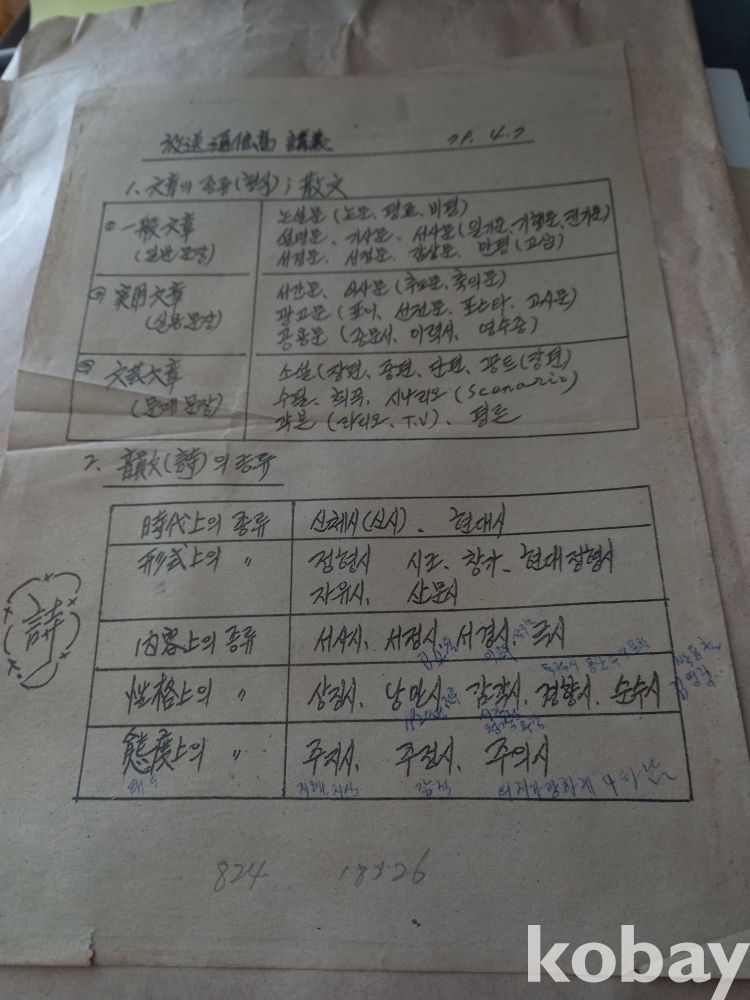 放送通信高 講義 78. 4. 7
1. 文章의 종류(형식); 散文
① 一般文章 논설문 (논문, 평론, 비평)
(일반문장) 설명문, 기사문, 서사문(일기문, 기행문, 전기문)
서경문, 서정문, 감상문, 만평(고십)
② 実用文章 서간문, 식사문 (추도문, 축의문)
(실용문장) 광고문 (표어, 선전문, 포스타, 고사문)
공용문 (공문서, 이력서, 영수증)
③ 文芸文章 소설(장편, 중편, 단편, 꽁트(장편)
(문예문장) 수필, 희곡, 시나리오 (Scenario)
각본 (라디오, T.V), 평론
2. 韻文(詩)의 종류
時代上의 종류 신체시(신시), 현대시
形式上의 〃 정형시 시조, 창가, 현대정형시
자유시, 산문시
詩
内容上의 종류 서사시, 서정시, 서경시, 극시
김소월
性格上의 〃 상징시, 낭만시, 감각시, 경향시, 순수시
김영랑
態度上의 〃 주지시, 주정시, 주의시
태도 지혜, 지식 감정 의지가 강하게 나타남
824 18×26
kobay